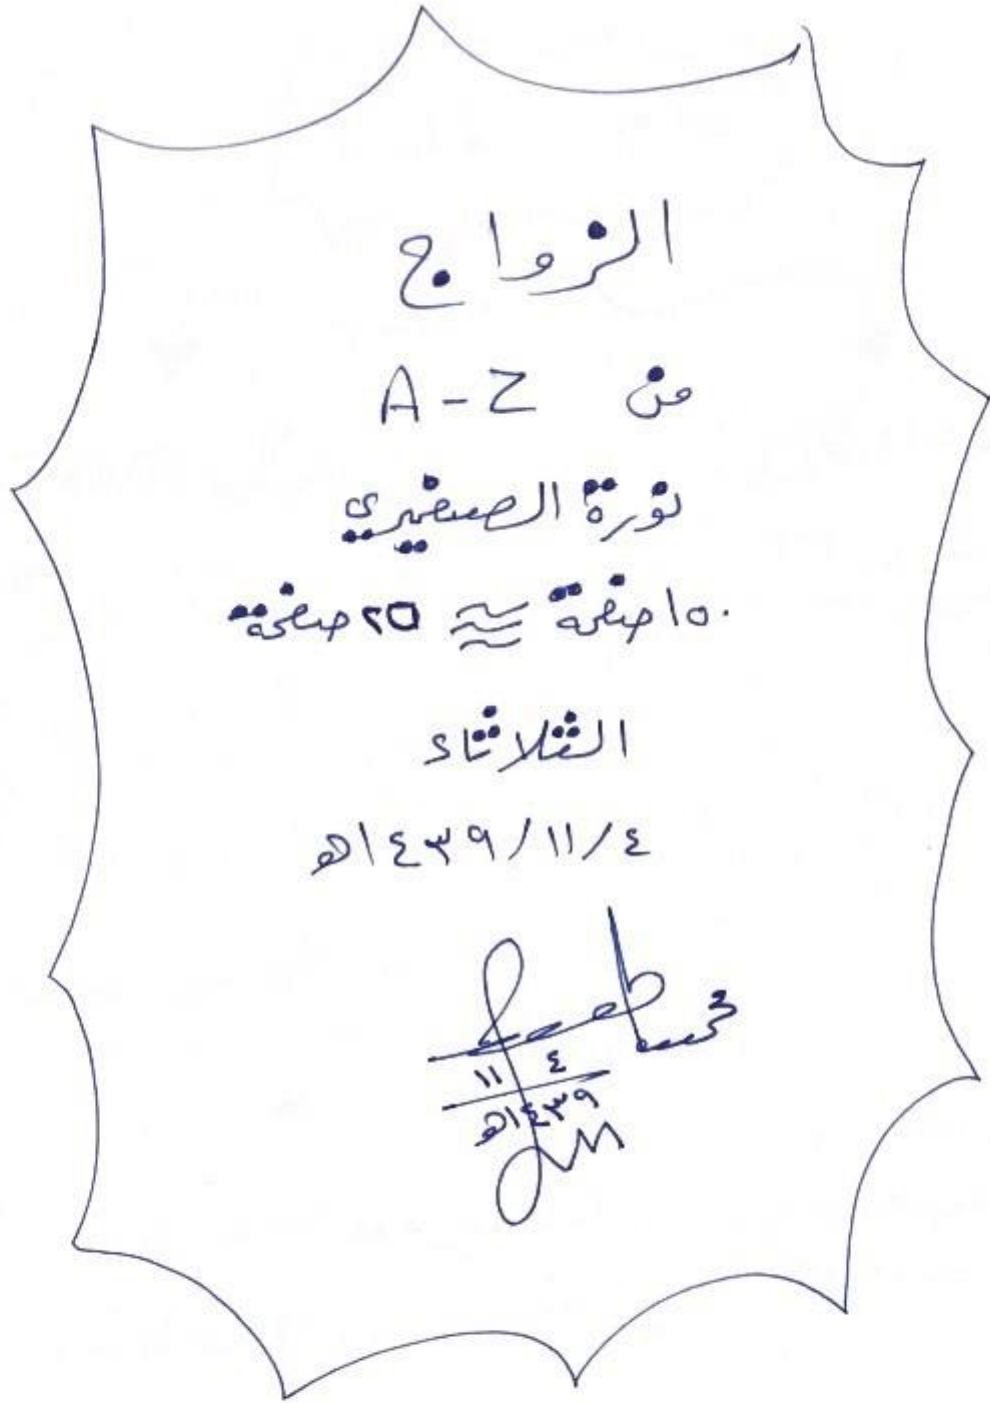 الزواج
من A - Z
نورة الصفيري
١٥٠ صفحة ≈ ٢٥ صفحة
الثلاثاء
١٤٣٩/١١/٤هـ
٤
١١
١٤٣٩هـ